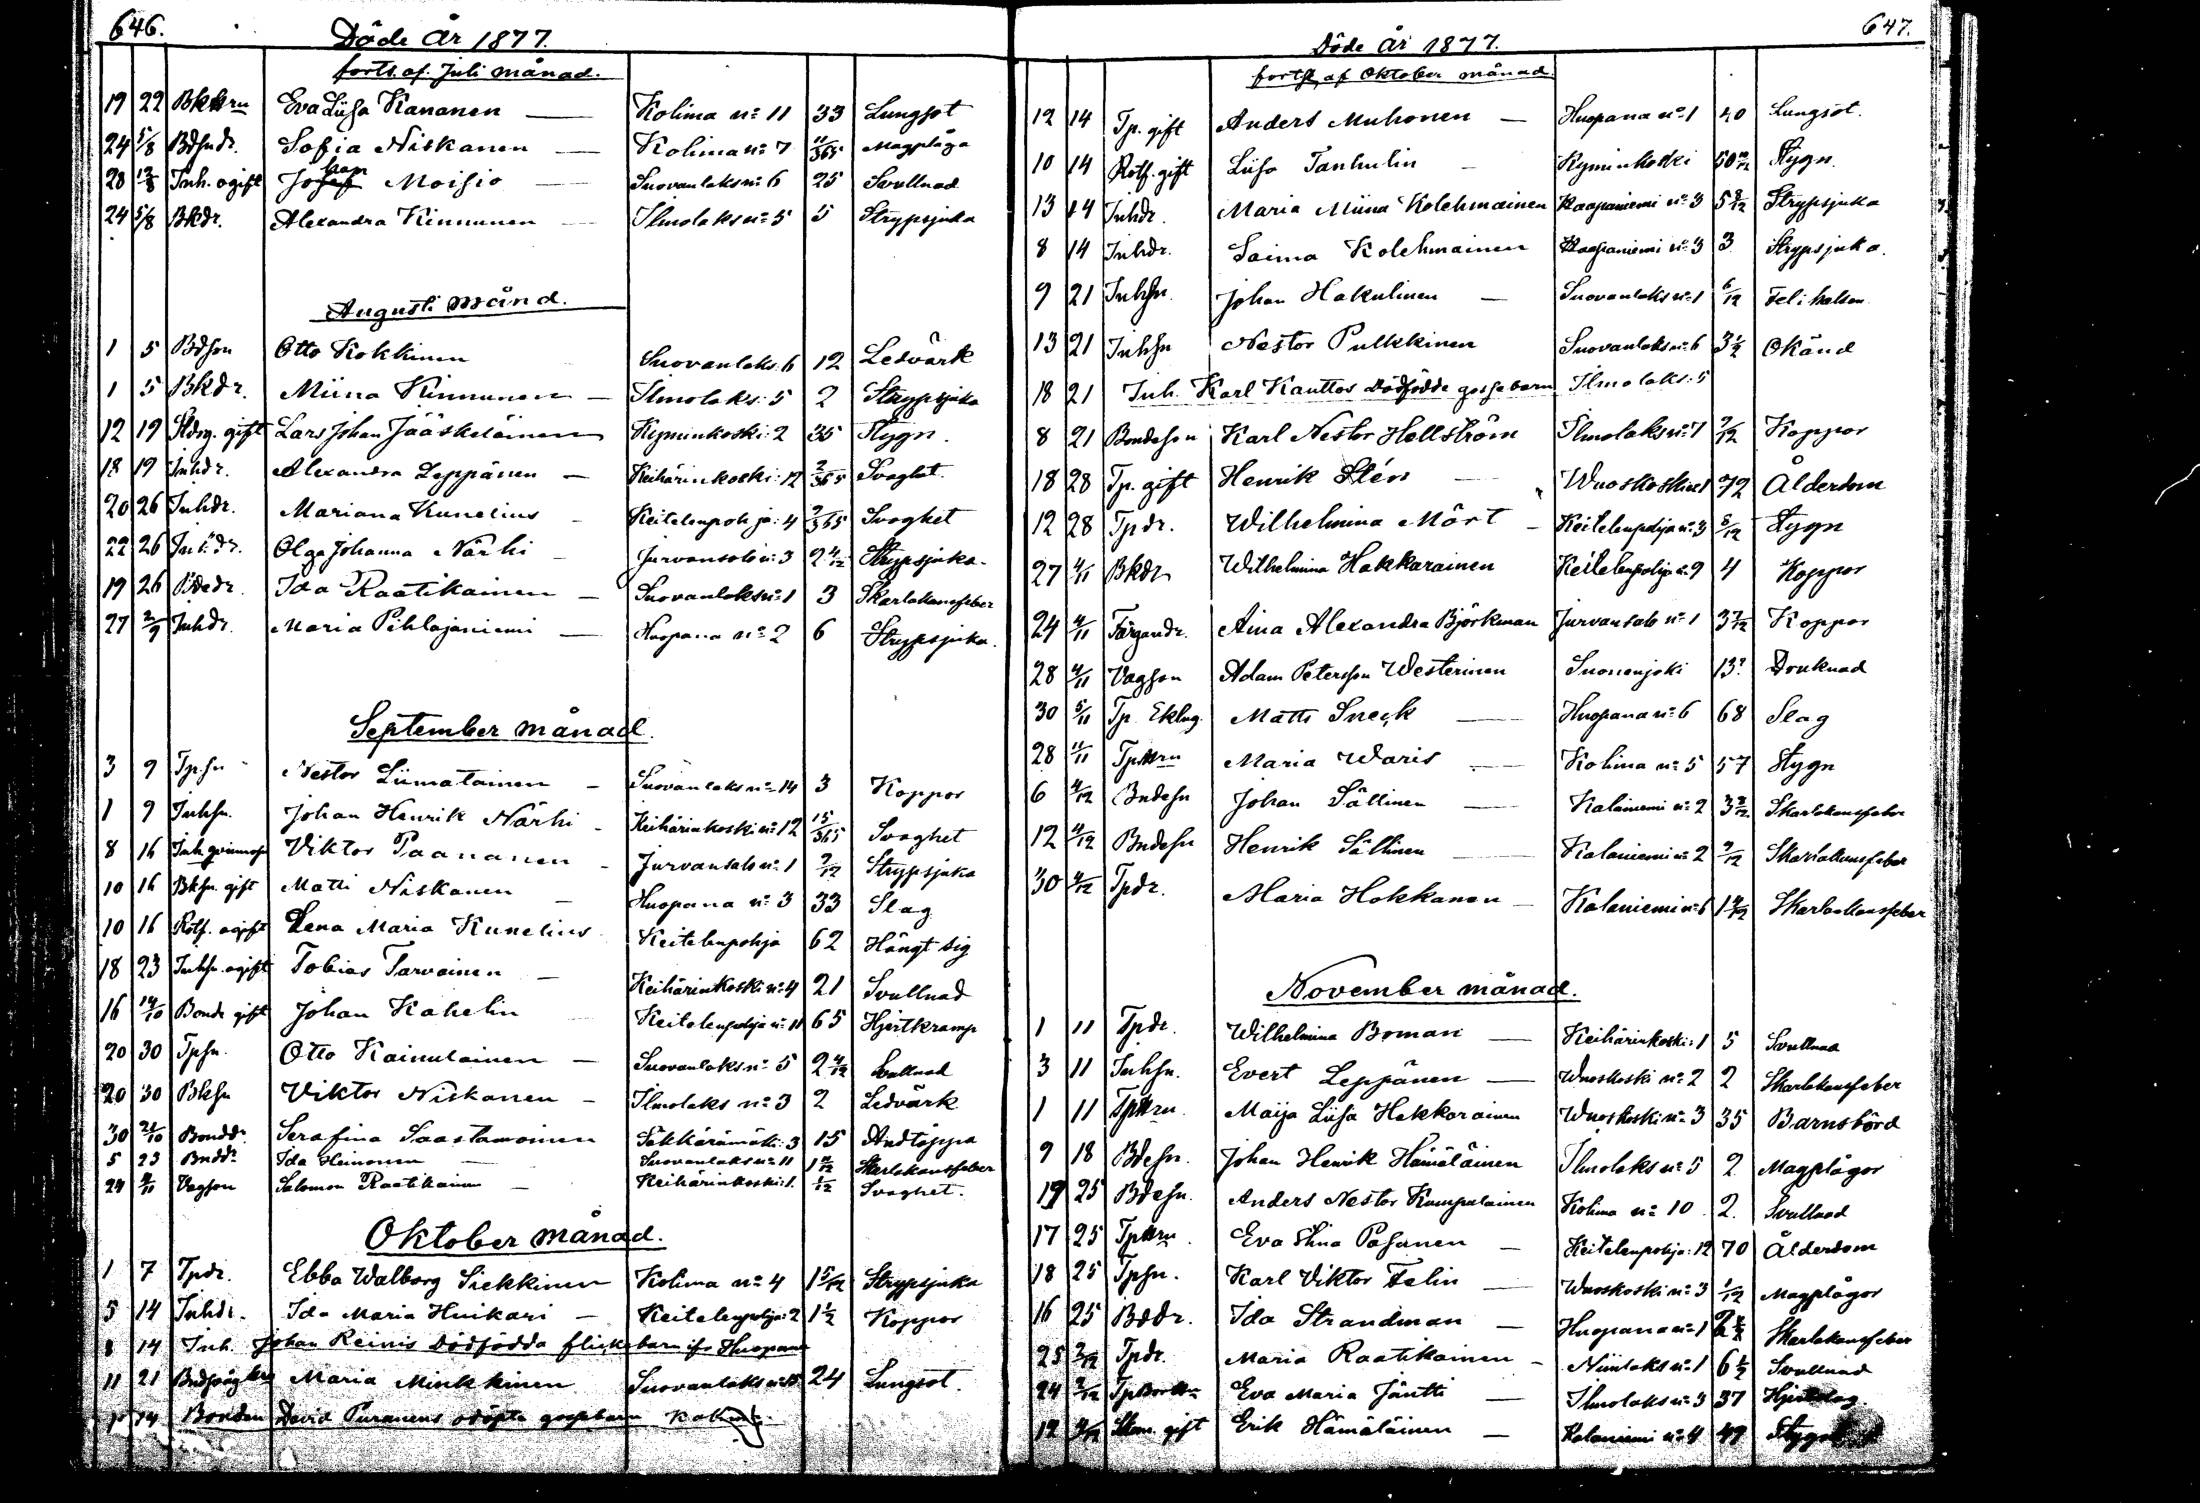 646.
Döde År 1877.
forts. af. Juli månad.
19 22 Bkhru Eva Liisa Kananen — Kolima no 11 33 Lungsot
24 5/8 Bdhndr. Sofia Niskanen — Kolima no 7 11/365 Magplåga
28 12/8 Inh. ogift Johan Moisio — Suovanlaks no 6 25 Svullnad
24 5/8 Bkdr. Alexandra Kinnunen — Ilmolaks no 5 5 Strypsjuka
Augusti månd.
1 5 Bdson Otto Kokkinen Suovanlaks: 6 12 Ledvärk
1 5 Bkdr. Miina Kinnunen — Ilmolaks: 5 2 Strypsjuka
12 19 gift Lars Johan Jääskeläinen Kyminkoski: 2 35 Stygn.
18 19 Inhdr. Alexandra Leppänen — Keihärinkoski: 12 2/365 Svaghet.
20 26 Inhdr. Mariana Kunelius — Keitelenpohja: 4 2/365 Svaghet
22 26 Inhdr. Olga Johanna Närhi — Jurvansalo no 3 2 4/12 Strypsjuka.
19 26 Bdedr. Ida Raatikainen — Suovanlaks no 1 3 Skarlakansfeber
27 2/9 Inhdr. Maria Pihlajaniemi — Huopana no 2 6 Strypsjuka.
September månad.
3 9 Tpsn Nestor Liimatainen — Suovanlaks no 14 3 Koppor
1 9 Inhsn. Johan Henrik Närhi — Keihärinkoski no 12 15/365 Svaghet
8 16 Inh. Viktor Paananen — Jurvansalo no 1 9/12 Strypsjuka
10 16 Bksn. gift Matti Niskanen — Huopana no 3 33 Slag
10 16 Rotf. ogift Lena Maria Kunelius Keitelenpohja 62 Hängt sig
18 23 Inhsn. ogift Tobias Tarvainen — Keihärinkoski no 4 21 Svullnad
16 14/10 Bonde gift Johan Kahelin Keitelenpohja no 11 65 Hjertkramp
20 30 Tpsn. Otto Kainulainen — Suovanlaks no 5 2 4/12 Svullnad
20 30 Bksn Viktor Niskanen — Ilmolaks no 3 2 Ledvärk
30 21/10 Bondedr Serafina Saastamoinen Säkkärämäki: 3 15 Andtäppa
5 23 Bnddr Ida Heinonen — Suovanlaks no 11 1 Skarlakansfeber
24 4/11 Vagson Salomon Raatikainen — Keihärinkoski: 1. 1/12 Svaghet.
Oktober månad.
1 7 Tpdr. Ebba Walborg Siekkinen Kolima no 4 1 5/12 Strypsjuka
5 14 Inhdr. Ida Maria Huikari — Keitelenpohja: 2 1 1/2 Koppor
8 14 Inh. Johan Reinis dödfödda flickebarn ifr Huopana
11 21 Maria Minkkinen Suovanlaks 24 Lungsot.
14 Bonden David Puranens odöpta gossebarn
647.
Döde År 1877.
forts, af Oktober månad.
12 14 Tp. gift Anders Muhonen — Huopana no 1 40 Lungsot.
10 14 Rotf. gift Liisa Tanhulin — Kyminkoski 50 Stygn.
13 14 Inhdr. Maria Miina Kolehmainen Haapaniemi no 3 5 8/12 Strypsjuka
8 14 Inhdr. Saima Kolehmainen Haapaniemi no 3 3 Strypsjuka.
9 21 Inhsn. Johan Hakulinen — Suovanlaks no 1 6/12 Fel i halsen
13 21 Inhsn Nestor Pulkkinen Suovanlaks no 6 3 1/2 Okänd
18 21 Inh. Karl Kauttos dödfödde gossebarn Ilmolaks: 5
8 21 Bondeson Karl Nestor Hellström Ilmolaks no 7 9/12 Koppor
18 28 Tp. gift Henrik Stén — Wuoskoski no 1 72 Ålderdom
12 28 Tpdr. Wilhelmina Mört — Keitelenpohja no 3 5/12 Stygn
27 4/11 Bkdr Wilhelmina Hakkarainen Keitelenpohja no 9 4 Koppor
24 4/11 Färgaredr. Aina Alexandra Björkman Jurvansalo no 1 3 7/12 Koppor
28 4/11 Vagson Adam Petersson Westerinen Suonenjoki 13? Drunknad
30 5/11 Tp. Eklng. Matts Sneck — Huopana no 6 68 Slag
28 11/11 Tphru Maria Waris — Kolima no 5 57 Stygn
6 4/12 Bndesn Johan Sällinen — Kalaniemi no 2 3 Skarlakansfeber
12 4/12 Bndesn Henrik Sällinen — Kalaniemi no 2 9/12 Skarlakansfeber
30 4/12 Tpdr. Maria Hokkanen — Kalaniemi no 6 1 Skarlakansfeber
November månad.
1 11 Tpdr. Wilhelmina Boman — Keihärinkoski: 1 5 Svullnad
3 11 Inhsn. Evert Leppänen — Wuoskoski no 2 2 Skarlakansfeber
1 11 Tphru Maija Liisa Hakkarainen Wuoskoski no 3 35 Barnsbörd
9 18 Bdesn. Johan Henrik Hämäläinen Ilmolaks no 5 2 Magplågor
19 25 Bdesn. Anders Nestor Kumpulainen Kolima no 10 2. Svullnad
17 25 Tphru. Eva Stina Pasanen — Keitelenpohja: 12 70 Ålderdom
18 25 Tpsn. Karl Viktor Felin — Wuoskoski no 3 1/12 Magplågor
16 25 Bddr. Ida Strandman — Huopana no 1 Skarlakansfeber
25 2/12 Tpdr. Maria Raatikainen — Niinilaks no 1 6 1/2 Svullnad
24 2/12 Eva Maria Jäntti — Ilmolaks no 3 37 Hjertslag.
12 4/12 gift Erik Hämäläinen — Kalaniemi no 4 49 Stygn